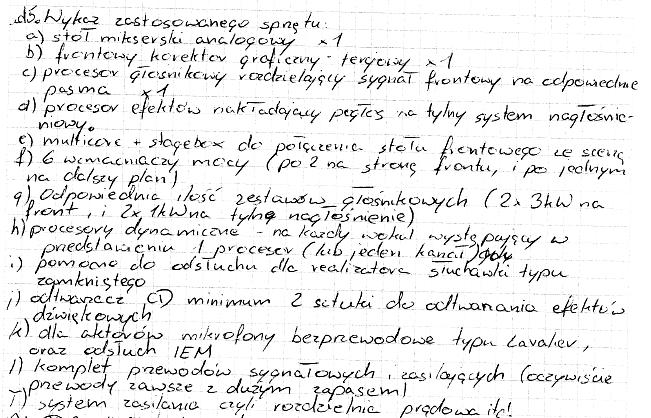 d5. Wykaz zastosowanego sprzętu:
a) stół mikserski analogowy x1
b) frontowy korektor graficzny - tercjowy x1
c) procesor głośnikowy rozdzielający sygnał frontowy na odpowiednie
pasma x1
d) procesor efektów nakładający pogłos na tylny system nagłośnie-
niowy.
e) multicore + stagebox do połączenia stołu frontowego ze sceną
f) 6 wzmacniaczy mocy (po 2 na stronę frontu, i po jednym
na dalszy plan)
g) Odpowiednia ilość zestawów głośnikowych (2x 3kW na
front, i 2x 1kW na tylne nagłośnienie)
h) procesory dynamiczne - na każdy wokal występujący w
przedstawieniu 1 procesor (lub jeden kanał)
i) pomocne do odsłuchu dla realizatora słuchawki typu
zamkniętego
j) odtwarzacz CD minimum 2 sztuki do odtwarzania efektów
dźwiękowych
k) dla aktorów mikrofony bezprzewodowe typu Lavalier,
oraz odsłuch IEM
l) komplet przewodów sygnałowych i zasilających (oczywiście
przewody zawsze z dużym zapasem)
ł) system zasilania czyli rozdzielnia prądowa itd!